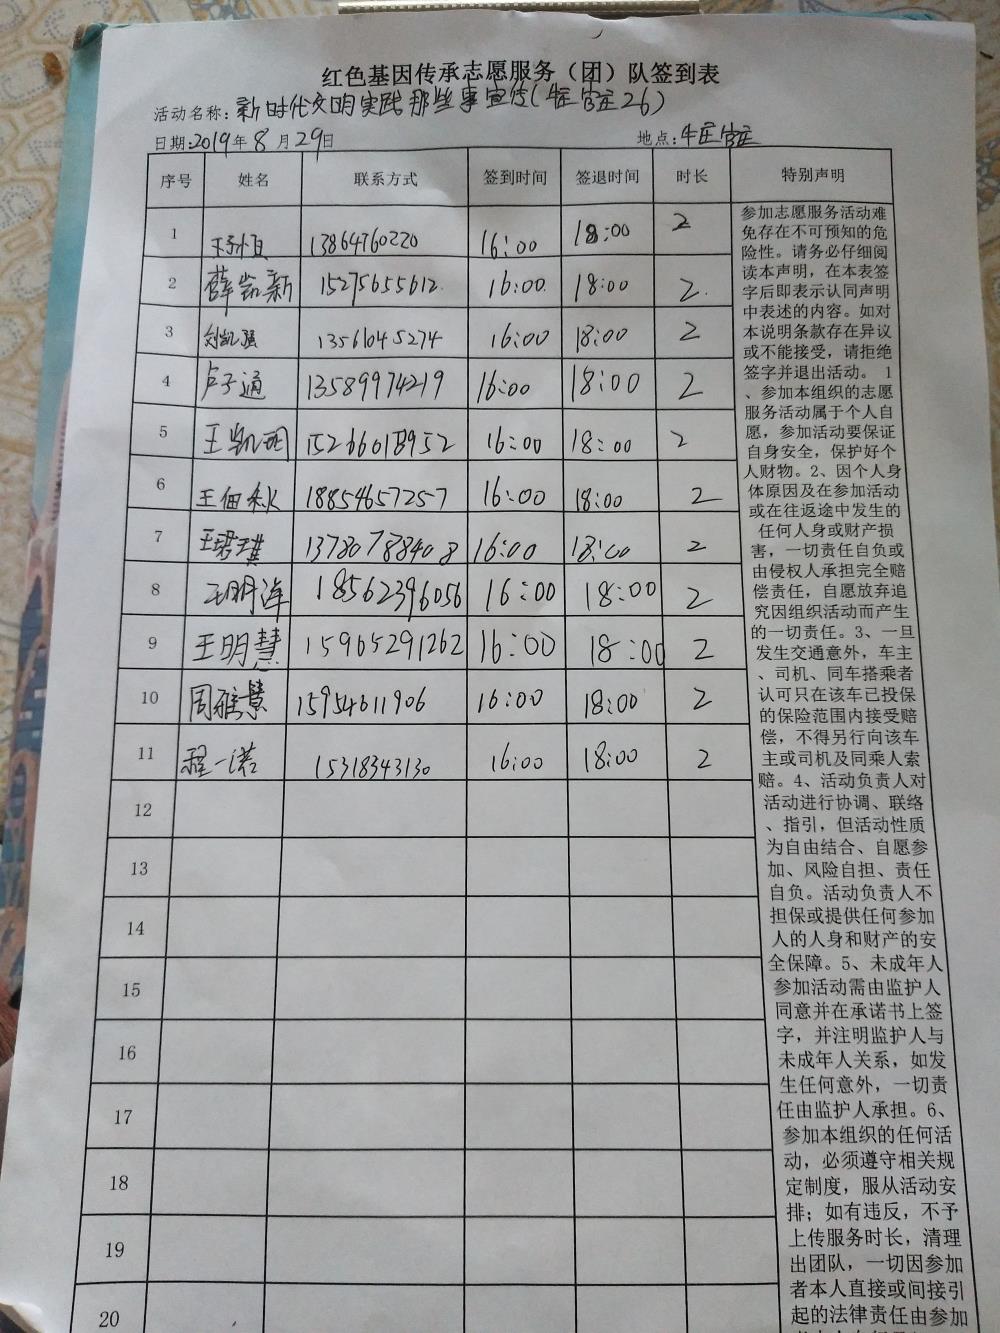 红色基因传承志愿服务（团）队签到表
活动名称：新时代文明实践那些事宣传（牛庄官庄26）
日期：2019年8月29日 地点：牛庄官庄
序号 姓名 联系方式 签到时间 签退时间 时长 特别声明
1 13864760220 16:00 18:00 2
2 薛凯新 15275655612 16:00 18:00 2
3 刘凯强 13561045274 16:00 18:00 2
4 卢子通 13589974219 16:00 18:00 2
5 王凯 16:00 18:00 2
6 王佃秋 18854657257 16:00 18:00 2
7 王君琪 13780788408 16:00 18:00 2
8 王明海 18562396056 16:00 18:00 2
9 王明慧 15965291262 16:00 18:00 2
10 周雅慧 15954611906 16:00 18:00 2
11 程一诺 15318343130 16:00 18:00 2
12
13
14
15
16
17
18
19
20
参加志愿服务活动难
免存在不可预知的危
险性。请务必仔细阅
读本声明，在本表签
字后即表示认同声明
中表述的内容。如对
本说明条款存在异议
或不能接受，请拒绝
签字并退出活动。 1
、参加本组织的志愿
服务活动属于个人自
愿，参加活动要保证
自身安全，保护好个
人财物。2、因个人身
体原因及在参加活动
或在往返途中发生的
任何人身或财产损
害，一切责任自负或
由侵权人承担完全赔
偿责任，自愿放弃追
究因组织活动而产生
的一切责任。3、一旦
发生交通意外，车主
、司机、同车搭乘者
认可只在该车已投保
的保险范围内接受赔
偿，不得另行向该车
主或司机及同乘人索
赔。4、活动负责人对
活动进行协调、联络
、指引，但活动性质
为自由结合、自愿参
加、风险自担、责任
自负。活动负责人不
担保或提供任何参加
人的人身和财产的安
全保障。5、未成年人
参加活动需由监护人
同意并在承诺书上签
字，并注明监护人与
未成年人关系，如发
生任何意外，一切责
任由监护人承担。6、
参加本组织的任何活
动，必须遵守相关规
定制度，服从活动安
排；如有违反，不予
上传服务时长，清理
出团队，一切因参加
者本人直接或间接引
起的法律责任由参加